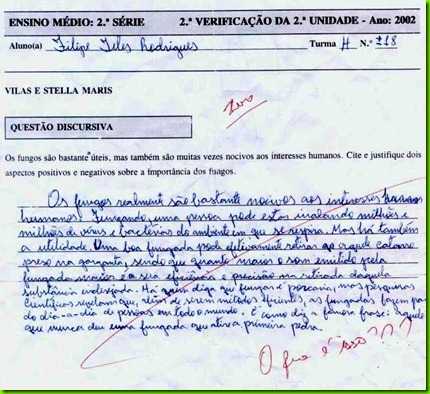 ENSINO MÉDIO: 2.ª SÉRIE 2.ª VERIFICAÇÃO DA 2.ª UNIDADE - Ano: 2002
Aluno(a) Filipe Teles Rodrigues Turma H N.º 18
VILAS E STELLA MARIS
Zero
QUESTÃO DISCURSIVA
Os fungos são bastante úteis, mas também são muitas vezes nocivos aos interesses humanos. Cite e justifique dois
aspectos positivos e negativos sobre a importância dos fungos.
Os fungos realmente são bastante nocivos aos interesses
humanos. Fungando, uma pessoa pode estar inalando milhões e
milhões de vírus e bactérias do ambiente em que se respira. Mas há também
a utilidade. Uma boa fungada pode efetivamente retirar aquele catarro
preso na garganta, sendo que quanto maior o som emitido pela
fungada maior é a sua eficiência e precisão na retirada daquela
substância indesejada. Há quem diga que fungar é porcaria, mas pesquisas
científicas revelam que, além de serem métodos eficientes, as fungadas fazem par
do dia-a-dia de pessoas em todo o mundo. É como diz a famosa frase: aquele
que nunca deu uma fungada que atire a primeira pedra.
O que é isso???